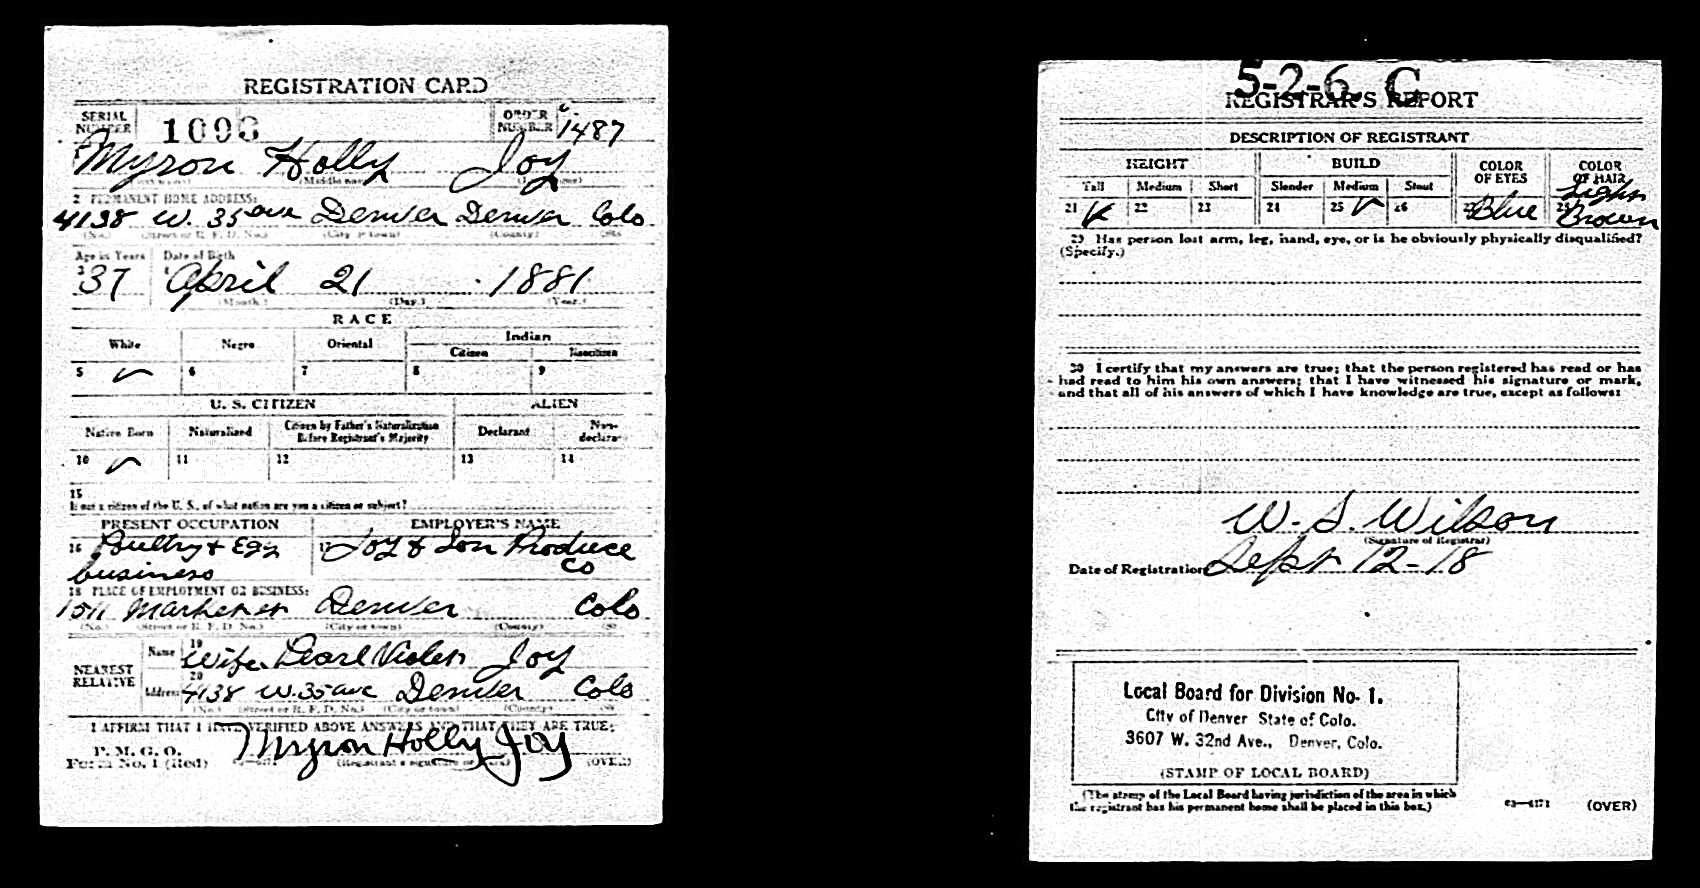 REGISTRATION CARD
SERIAL NUMBER
ORDER NUMBER 1487
Myron Holly Joy
(Middle name)
2 PERMANENT HOME ADDRESS:
4138 W. 35 ave Denver Denver Colo
(No.) (Street or R. F. D. No.) (City or town) (County)
Age in Years Date of Birth
37 April 21 1881
(Month.) (Day.) (Year.)
RACE
White Negro Oriental Indian
Citizen Noncitizen
5 6 7 8 9
U. S. CITIZEN ALIEN
Native Born Naturalized Citizen by Father's Naturalization Before Registrant's Majority Declarant Non-declarant
10 11 12 13 14
15
If not a citizen of the U. S., of what nation are you a citizen or subject?
PRESENT OCCUPATION EMPLOYER'S NAME
16 Poultry & Egg 17 Joy & Son Produce
business Co
18 PLACE OF EMPLOYMENT OR BUSINESS:
1511 Market St Denver Colo
(No.) (Street or R. F. D. No.) (City or town) (County)
NEAREST RELATIVE
Name 19 Wife Pearl Violet Joy
Address 20 4138 W. 35 ave Denver Colo
(No.) (Street or R. F. D. No.) (City or town) (County)
I AFFIRM THAT I HAVE VERIFIED ABOVE ANSWERS AND THAT THEY ARE TRUE:
P. M. G. O.
Form No. 1 (Red) Myron Holly Joy
(Registrant's signature or mark) (OVER)
5-2-6. C
REGISTRAR'S REPORT
DESCRIPTION OF REGISTRANT
HEIGHT BUILD COLOR OF EYES COLOR OF HAIR
Tall Medium Short Slender Medium Stout
21 22 23 24 25 26 Blue Light Brown
29 Has person lost arm, leg, hand, eye, or is he obviously physically disqualified?
(Specify.)
30 I certify that my answers are true; that the person registered has read or has
had read to him his own answers; that I have witnessed his signature or mark,
and that all of his answers of which I have knowledge are true, except as follows:
W. S. Wilson
(Signature of Registrar)
Date of Registration Sept 12-18
Local Board for Division No. 1.
City of Denver State of Colo.
3607 W. 32nd Ave., Denver, Colo.
(STAMP OF LOCAL BOARD)
(The stamp of the Local Board having jurisdiction of the area in which
the registrant has his permanent home shall be placed in this box.)
03—6171 (OVER)